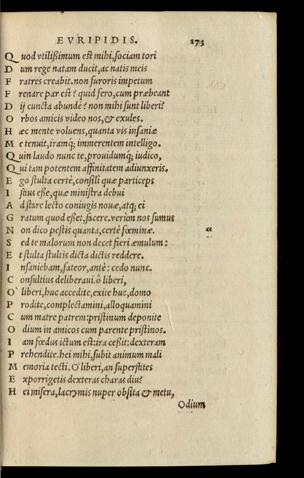 EVRIPIDIS. 175
Quod vtilißimum est mihi, sociam tori
Dum rege natam ducit, ac natis meis
Fratres creabit. non furoris impetum
Frenare par est? quid fero, cum præbeant
Dij cuncta abunde? non mihi sunt liberi?
Orbos amicis video nos, & exules.
Hæc mente voluens, quanta vis insaniæ
Me tenuit, iramq; immerentem intelligo.
Quin laudo nunc te, prouidumq; iudico,
Qui tam potentem affinitatem adiunxeris.
Ego stulta certè, consili quæ particeps
Istius eße, quæ ministra debui
Adstare lecto coniugis nouæ, atq; ei
Gratum quod eßet, facere. verùm nos sumus
Non dico pestis quanta, certè fœminæ. “
Sed te malorum non decet fieri æmulum:
Et stulta stultis dicta dictis reddere.
Insaniebam, fateor, antè: cedo nunc.
Consultius deliberaui. ô liberi,
O' liberi, huc accedite, exite huc, domo
Prodite, complectamini, alloquamini
Cum matre patrem: pristinum deponite
Odium in amicos cum parente pristinos.
Iam fœdus ictum est: ira ceßit: dexteram
Prehendite. hei mihi, subit animum mali
Memoria tecti. O' liberi, an superstites
Exporrigetis dexteras charas diu?
Hei misera, lacrymis nuper obsita & metu,
Odium